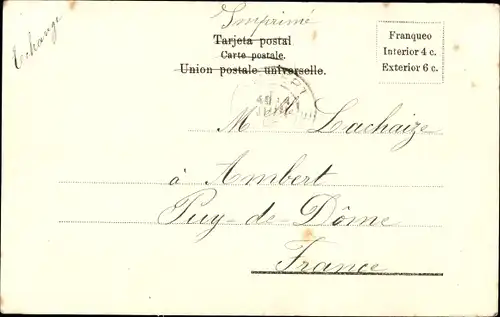 Imprimé
Echange
Tarjeta postal
Carte postale.
Union postale universelle.
Franqueo
Interior 4 c.
Exterior 6 c.
M. Lachaize
à Ambert
Puy-de-Dôme
France